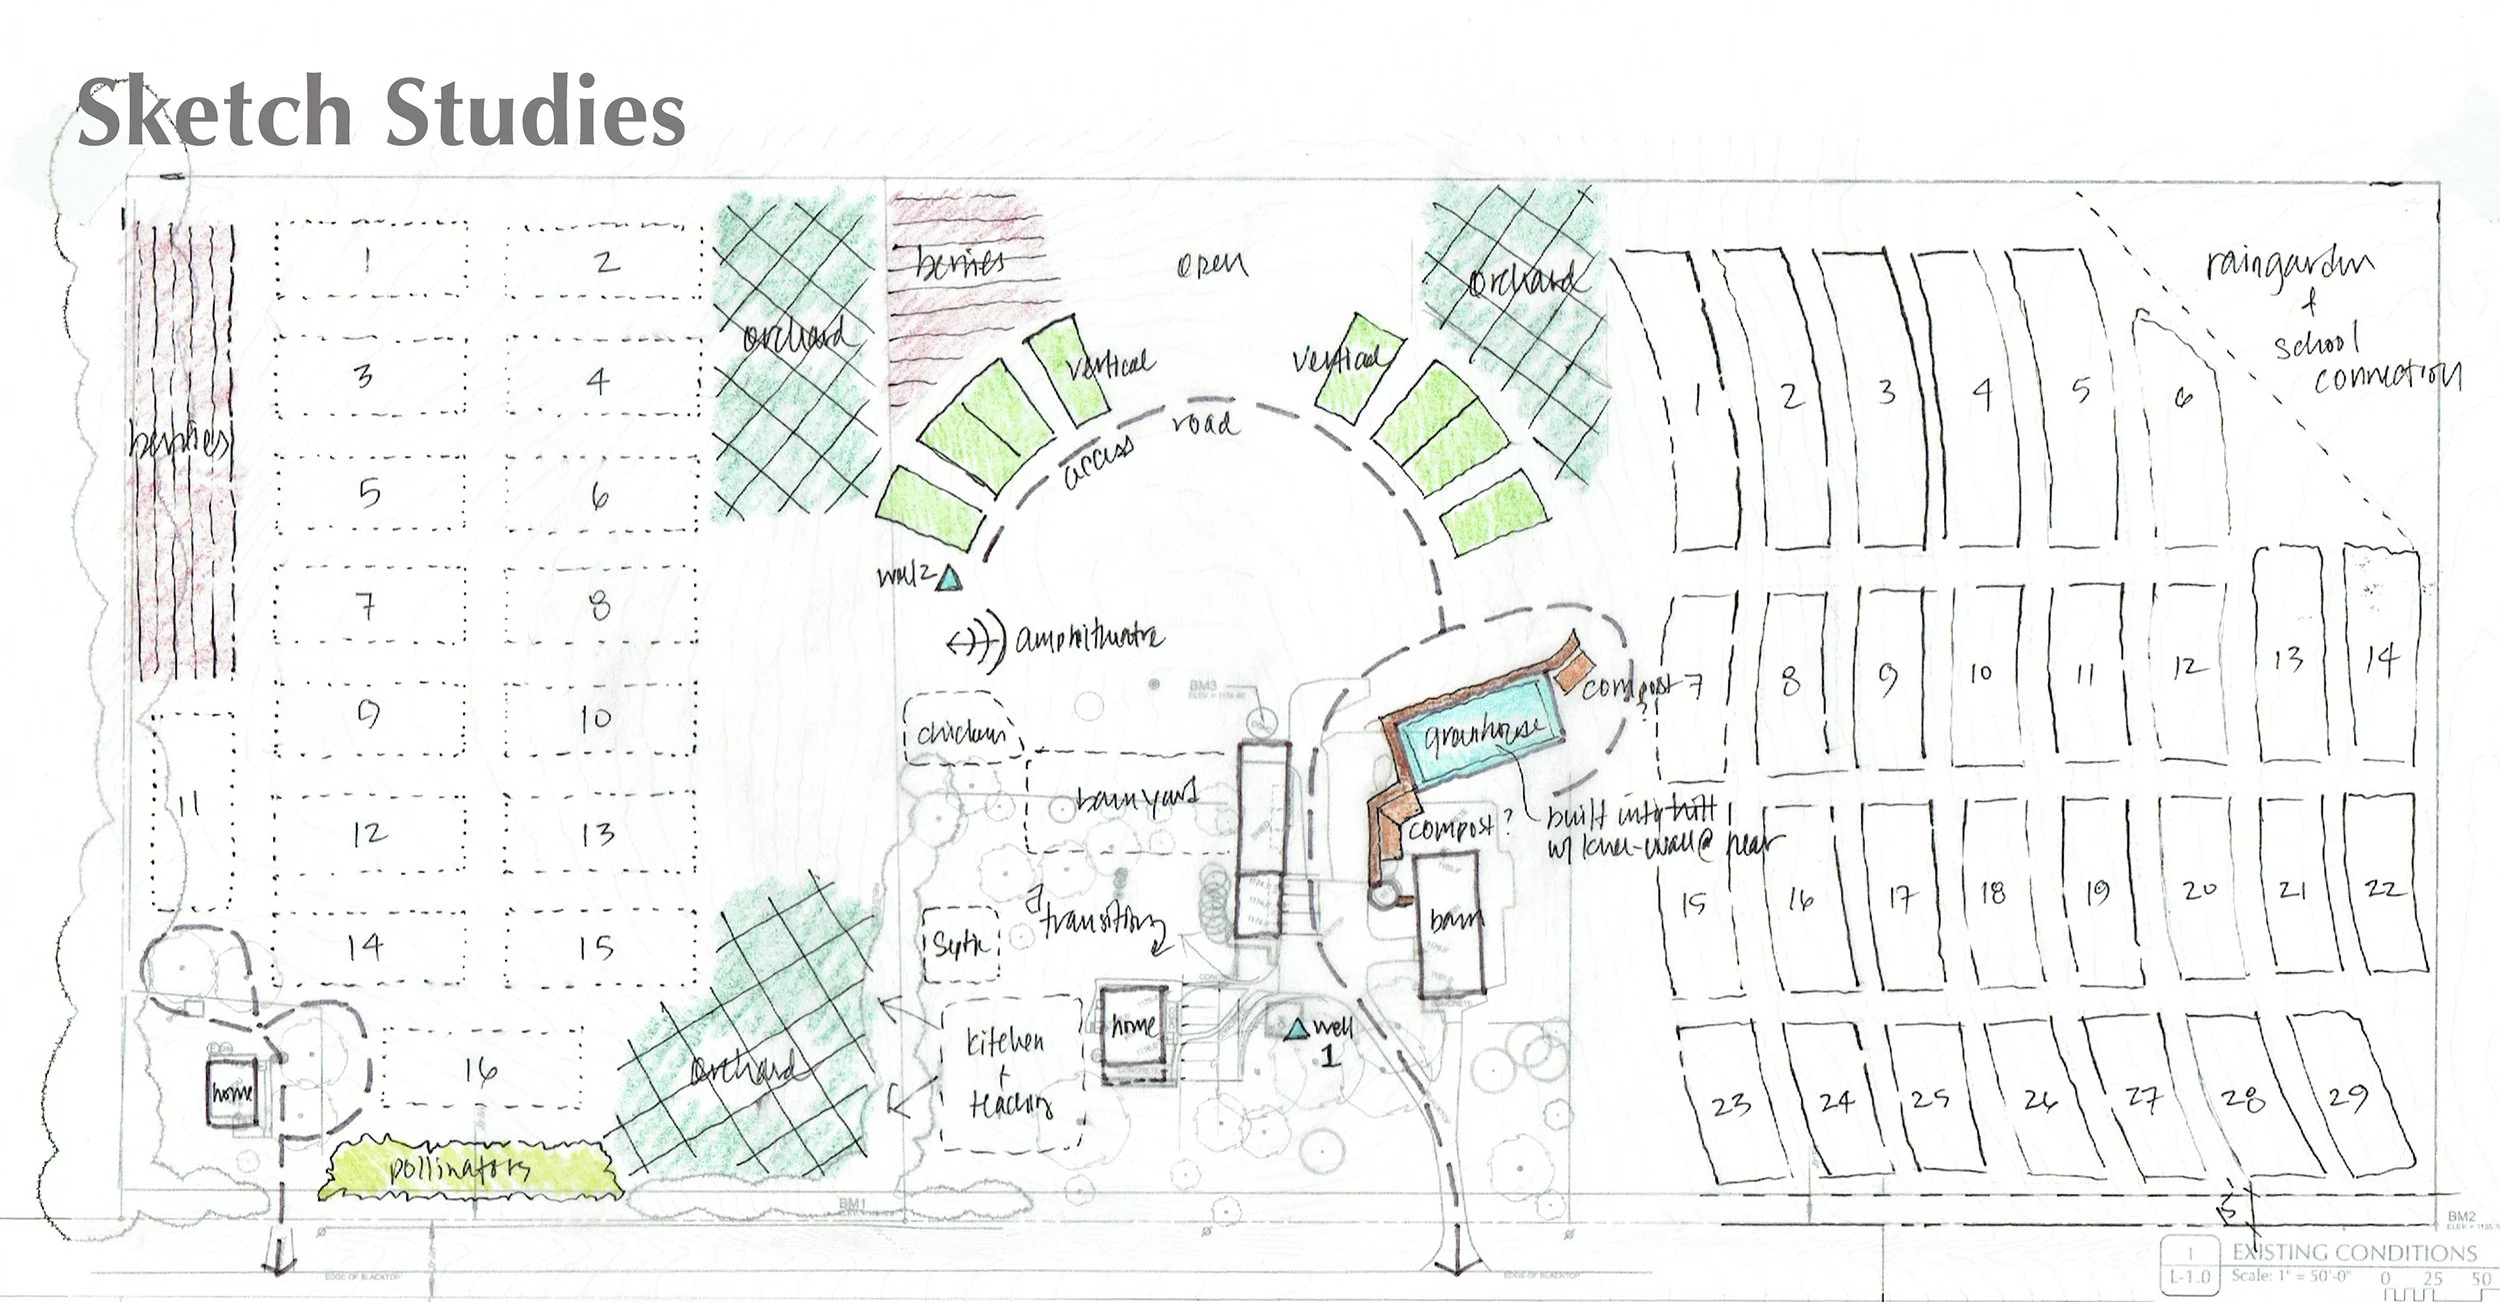 Sketch Studies
berries
1
2
3
4
5
6
7
8
9
10
11
12
13
14
15
16
orchard
berries
open
orchard
vertical
vertical
access
road
well 2
amphitheatre
chickens
barnyard
transition
septic
kitchen
+
teaching
home
well
1
orchard
home
pollinators
BM3
BM1
greenhouse
compost
?
compost?
built into hill
w/ knee-wall @ rear
barn
raingarden
+
school
connection
1
2
3
4
5
6
7
8
9
10
11
12
13
14
15
16
17
18
19
20
21
22
23
24
25
26
27
28
29
15'
BM2
EDGE OF BLACKTOP
EDGE OF BLACKTOP
1
L-1.0
EXISTING CONDITIONS
Scale: 1" = 50'-0"
0 25 50